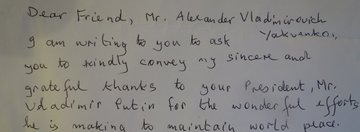 Dear Friend, Mr. Alexander Vladimirovich
Yakvenkn,
I am writing to you to ask
you to kindly convey my sincere and
grateful thanks to your President, Mr.
Vdadimir Putin for the wonderful efforts
he is making to maintain world peace.